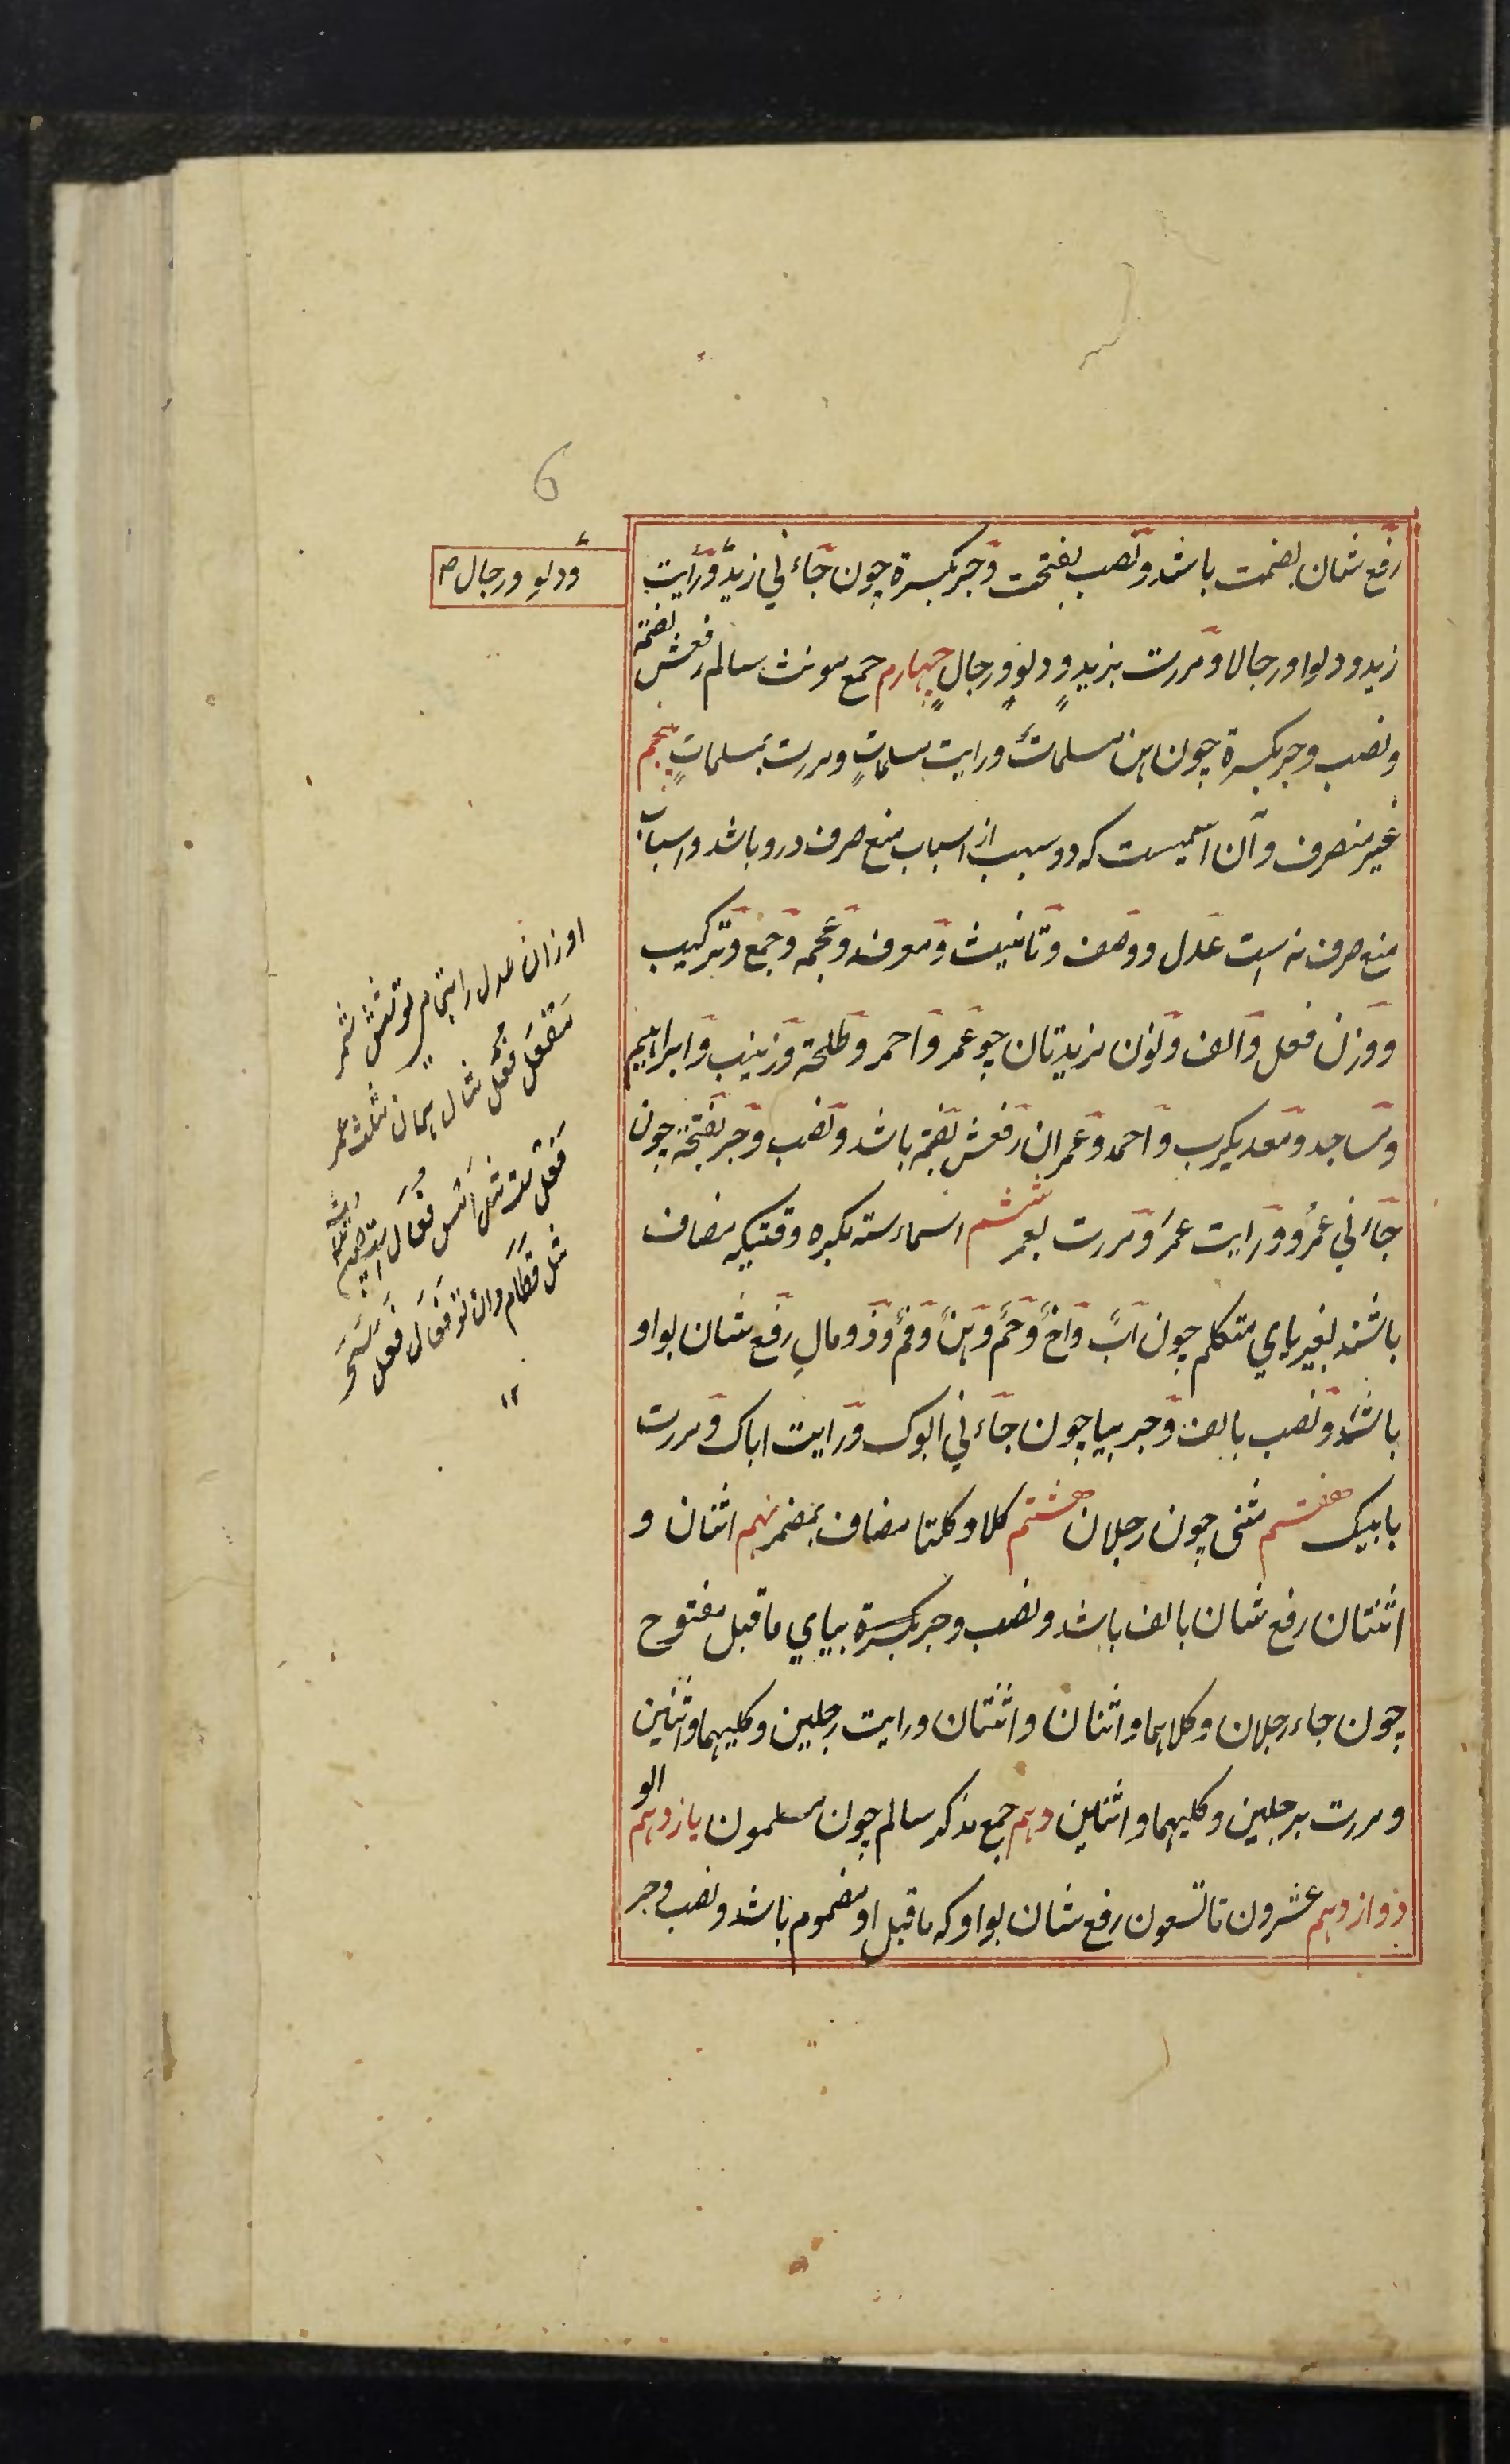 6
رفع شان بضمت باشد و نصب بفتحت و جر بکسرة چون جاء ني زيدٌ و رأيت
ودلو و رجال ص
زيد و دلوا و رجالا و مررت بزيدٍ و دلوٍ و رجالٍ چهارم جمع مونث سالم رفعش بضمة
و نصب و جر بکسرة چون هن مسلماتٌ و رايت مسلماتٍ و مررت بمسلماتٍ پنجم
غير منصرف و آن اسميست که دو سبب از اسباب منع صرف درو باشد و اسباب
منع صرف نه است عدل و وصف و تانيث و معرفه و عجمه و جمع و ترکيب
و وزن فعل و الف و نون مزيدتان چو عمر و احمر و طلحة و زينب و ابراهيم
و مساجد و معديکرب و احمد و عمران رفعش بضمة باشد و نصب و جر بفتحة چون
جاءني عمرُ و رايت عمرَ و مررت بعمر ششم اسماء ستة مکبره وقتيکه مضاف
باشند بغير ياي متکلم چون ابٌ و اخٌ و حمٌ و هنٌ و فمٌ و ذو مالٍ رفع شان بواو
باشد و نصب بالف و جر بيا چون جاء ني ابوک و رايت اباک و مررت
بابيک هفتم مثنى چون رجلان هشتم کلا و کلتا مضاف بمضمر نهم اثنان و
اثنتان رفع شان بالف باشد و نصب و جر بکسرة بياي ما قبل مفتوح
چون جاء رجلان و کلاهما و اثنان و اثنتان و رايت رجلين و کليهما و اثنين
و مررت برجلين و کليهما و اثنين دهم جمع مذکر سالم چون مسلمون يازدهم الو
دوازدهم عشرون تا تسعون رفع شان بواو که ما قبل او مضموم باشد و نصب و جر
اوزان عدل را بتمام تو شش شمر
مَفعَل فُعَل مثال همان مثلث عمر
فَعلِ مثل امس فُعال
مثل قطام دان تو فعال فعل سحر
١٢